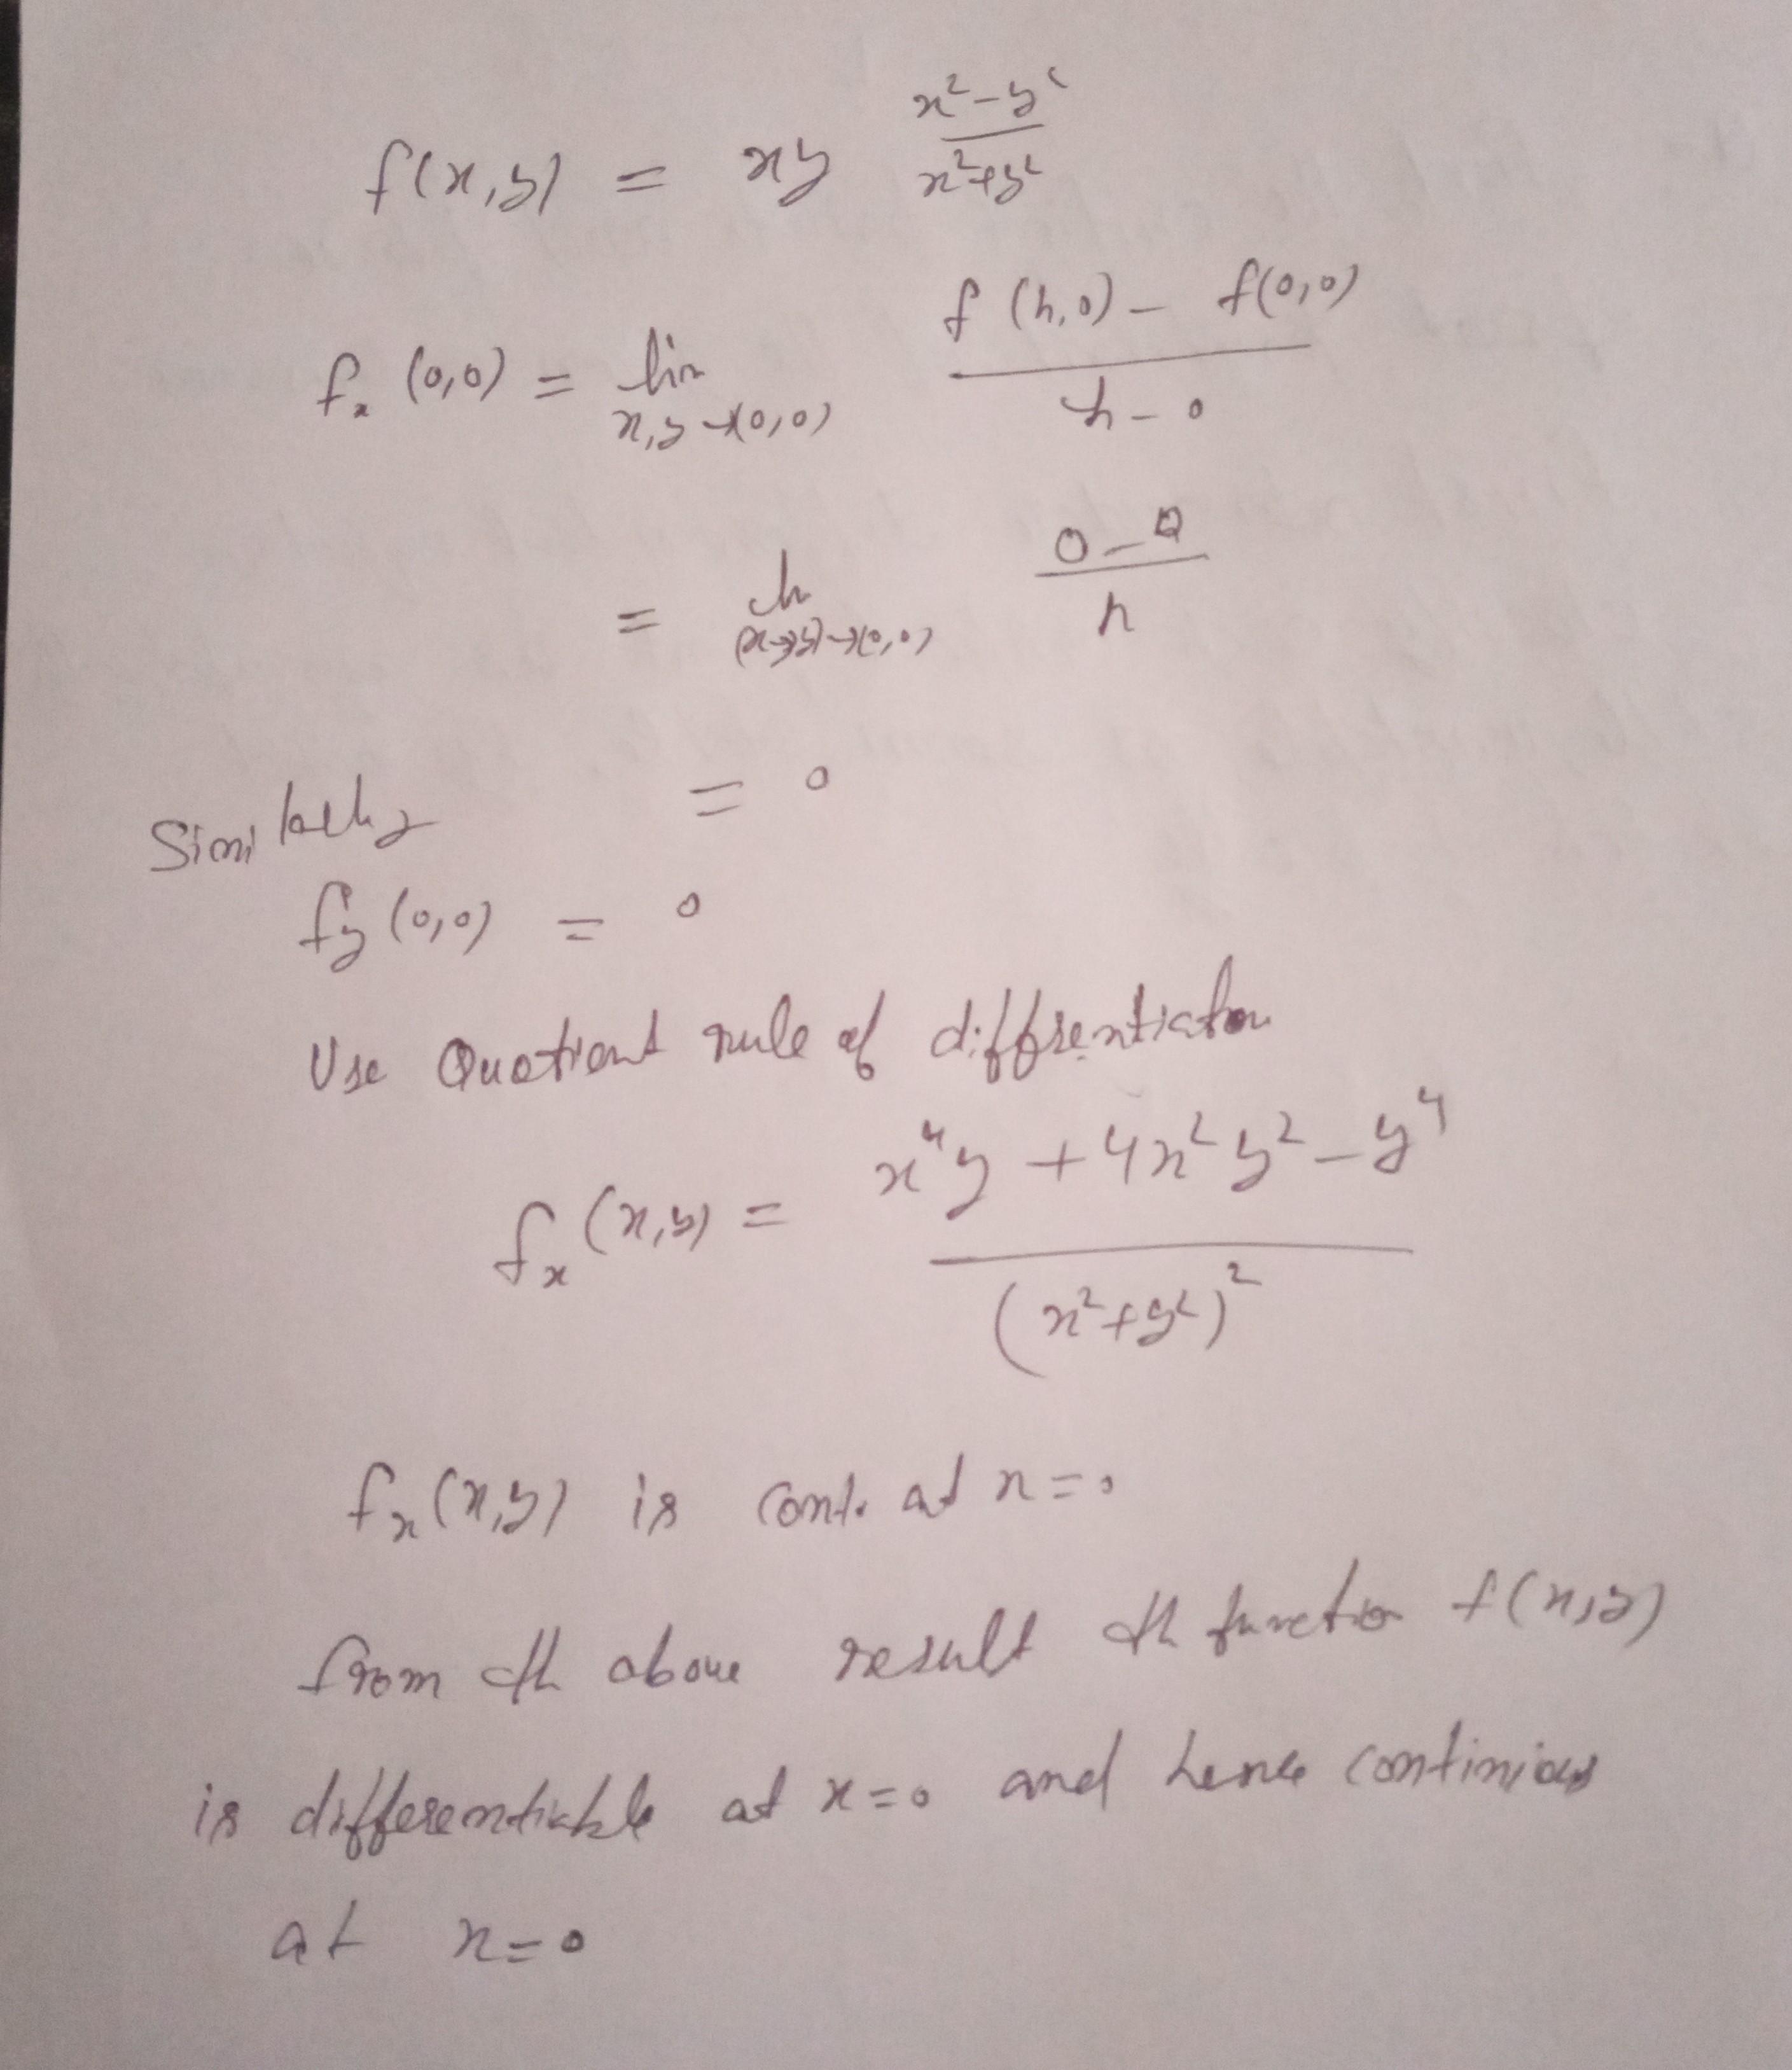 f(x,y) = xy (x²-y²)/(x²+y²)
fₓ (0,0) = lim x,y→(0,0) (f (h,0) - f(0,0))/(h-0)
= (0-0)/h
= 0
Similarly
f_y (0,0) = 0
Use Quotient rule of diffrentiation
fₓ(x,y) = (x⁴y + 4x²y² - y⁴)/(x²+y²)²
fₓ(x,y) is cont. at x=0
from th above result th function f(x,y)
is differentiable at x=0 and hence continious
at x=0